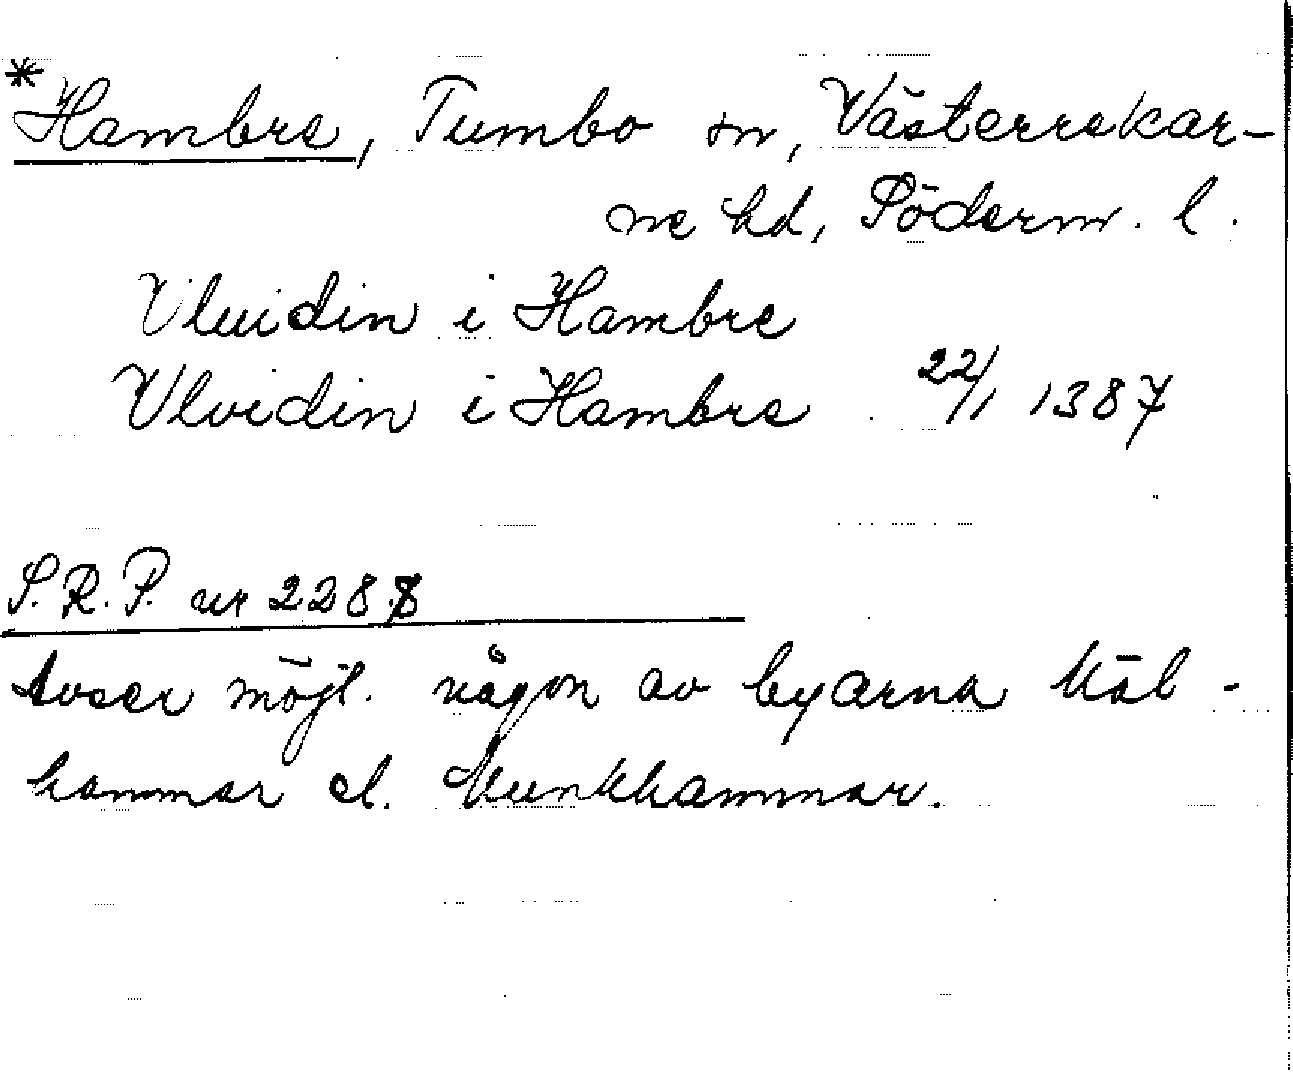 *Hambre, Tumbo sn, Västerrekar-
ne hd, Söderm. l.
Vluidin i Hambre
Vlvidin i Hambre 22/1 1387
S.R.P. nr 2288
Avser möjl. någon av byarna Häl-
hammar el. Munkhammar.